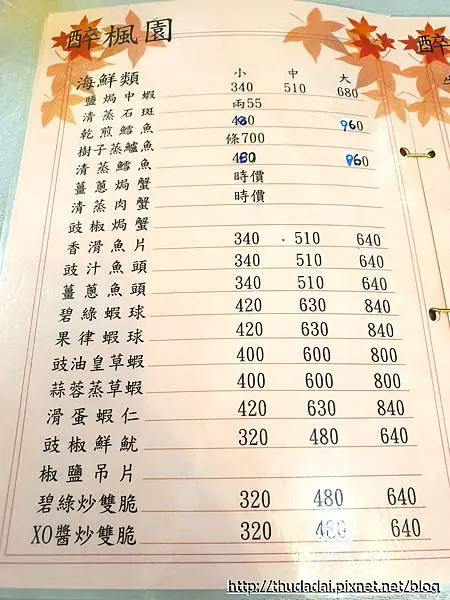 醉楓園
醉
海鮮類 小 中 大
鹽焗中蝦 340 510 680
清蒸石斑 兩55
乾煎鱈魚 480 960
樹子蒸鱸魚 條700
清蒸鱈魚 480 960
薑蔥焗蟹 時價
清蒸肉蟹 時價
豉椒焗蟹
香滑魚片 340 510 640
豉汁魚頭 340 510 640
薑蔥魚頭 340 510 640
碧綠蝦球 420 630 840
果律蝦球 420 630 840
豉油皇草蝦 400 600 800
蒜蓉蒸草蝦 400 600 800
滑蛋蝦仁 420 630 840
豉椒鮮魷 320 480 640
椒鹽吊片
碧綠炒雙脆 320 480 640
XO醬炒雙脆 320 480 640
http://thudadai.pixnet.net/blog